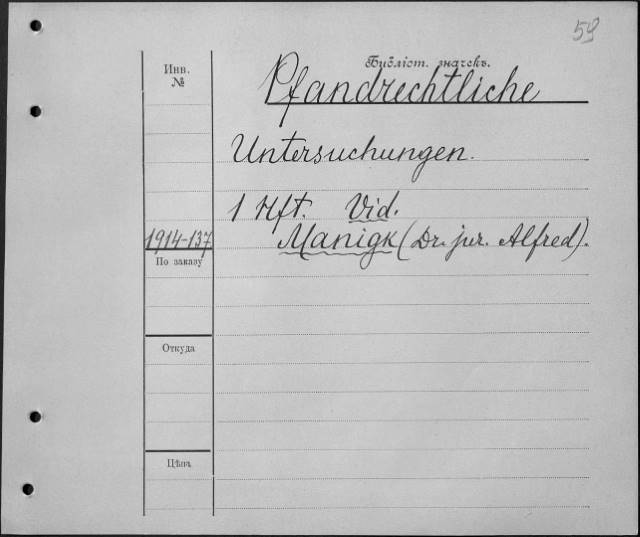 59
Инв.
№
Библіот. значекъ.
Pfandrechtliche
Untersuchungen.
1 Hft. Vid.
1914-137
Manigk (Dr. jur. Alfred).
По заказу
Откуда
Цѣна